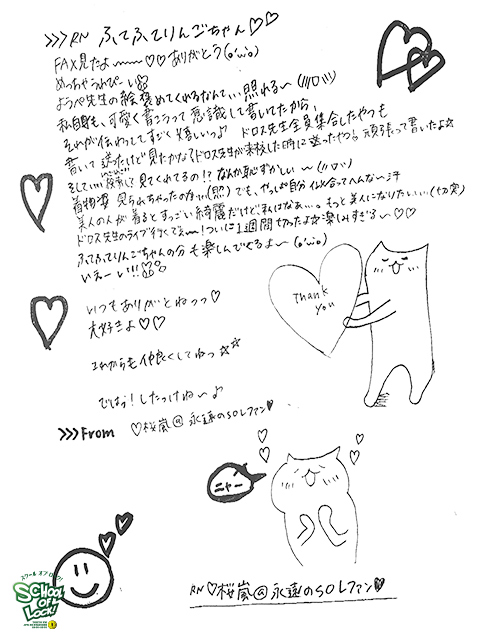 >>>RN ふてふてりんごちゃん♡♡
FAX見たよ〜〜♡♡ありがとう(o'ω'o)
めっちゃうれぴーい
ようぺ先生の絵褒めてくれるなんて、、照れる〜(///ロ//)
私自身も、可愛く書こうって意識して書いてたから、
それが伝わってすごく嬉しいっ♪ ドロス先生全員集合したやつも
書いて送ったけど見たかな?ドロス先生が来校した時に送ったやつ。頑張って書いたよ☆
そしていい 見てくれてるの!?なんか恥ずかしい〜(//ロ//)
着物姿 見られちゃったのね…(照)でも、やっぱ自分似合ってへんな〜汗
美人の人が着るとすっごい綺麗だけど、私はなぁ…。もっと美人になりたいい、、(切実)
ドロス先生のライブ行くでぇ〜!ついに1週間切ったよ☆楽しみすぎる〜♡♡
ふてふてりんごちゃんの分も楽しんでくるよ〜(o'ω'o)
いえーい!!!
いつもありがとねっっ♡
大好きよ♡♡
これからも仲良くしてねっ☆☆
ではっ!したっけね〜♪
>>>From ♡桜嵐@永遠のSOLファン♡
Thank you
ニャー
RN♡桜嵐@永遠のSOLファン♥
スクールオブロック!
SCHOOL OF LOCK!